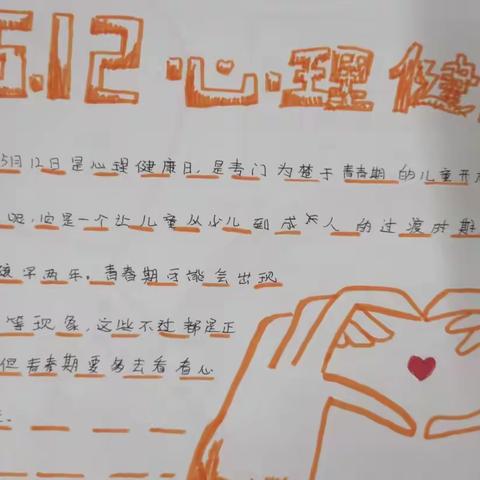 5.12·心·理健
5月12日是心理健康日,是专门为楚于青春期的儿童开
它是一个让儿童从少儿到成大人的过渡时期
早两年。青春期可能会出现
等现象,这些不过都是正
但青春期要多去看看心